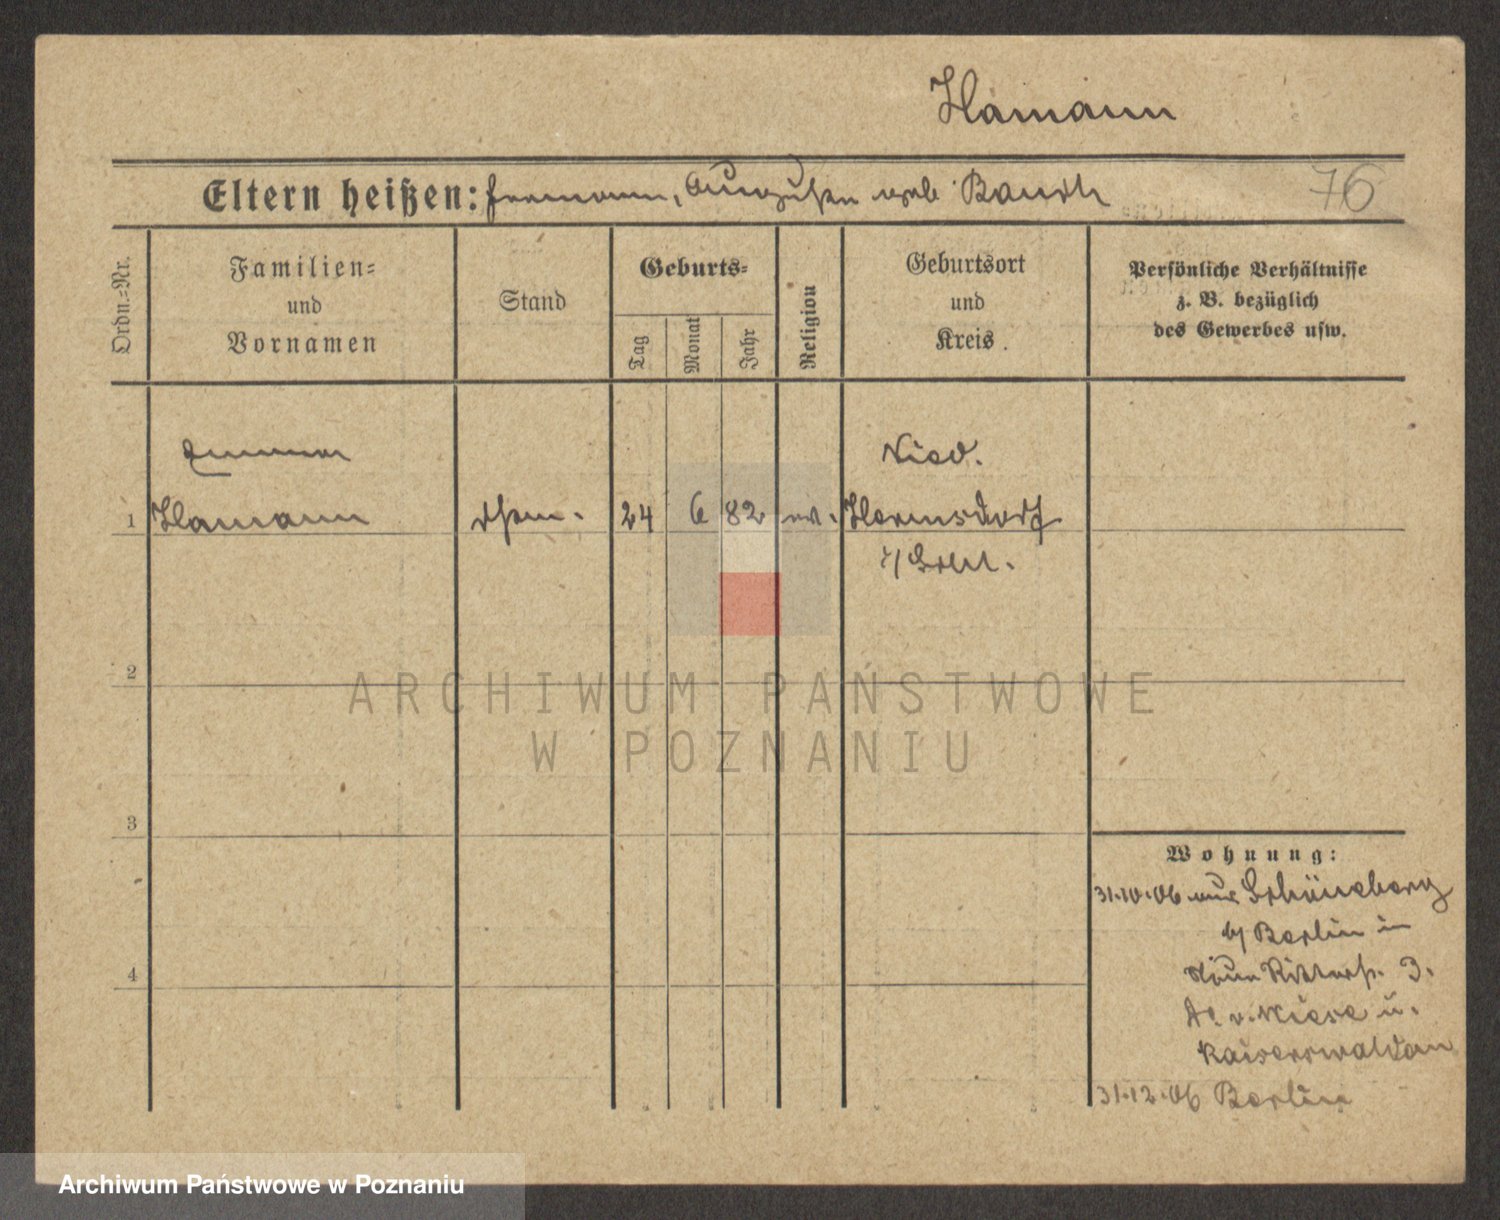 Hamann
Eltern heißen: Hermann, Auguste geb Bausch
76
Ordn.-Nr.
Familien-
und
Vornamen
Stand
Geburts-
Tag
Monat
Jahr
Religion
Geburtsort
und
Kreis.
Persönliche Verhältnisse
z. B. bezüglich
des Gewerbes usw.
Emma
Nied.
1 Hamann 24 6 82 ev. Hermsdorf
2
3
4
Wohnung:
31.10.06 aus Schöneberg
b/ Berlin in
Neue 3.
v. Kaiserswaldau
31.12.06 Berlin
ARCHIWUM PAŃSTWOWE
W POZNANIU
Archiwum Państwowe w Poznaniu